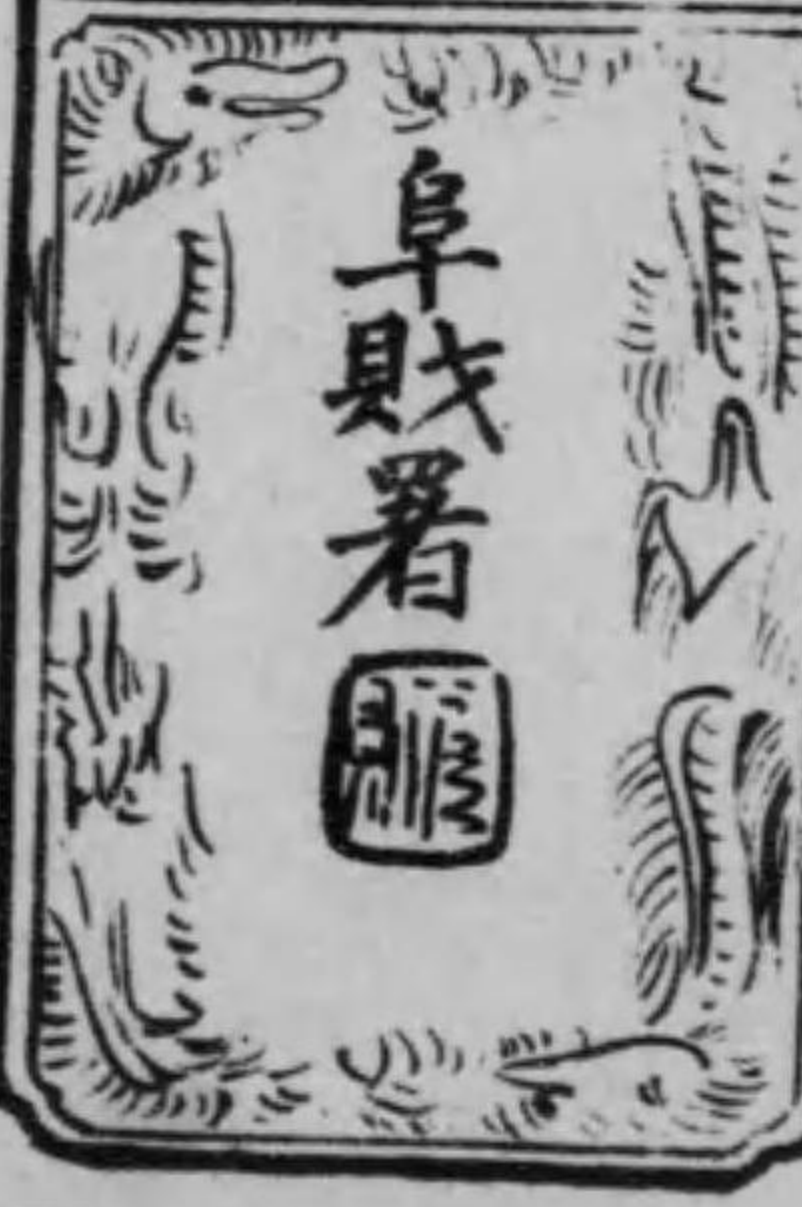 阜財署